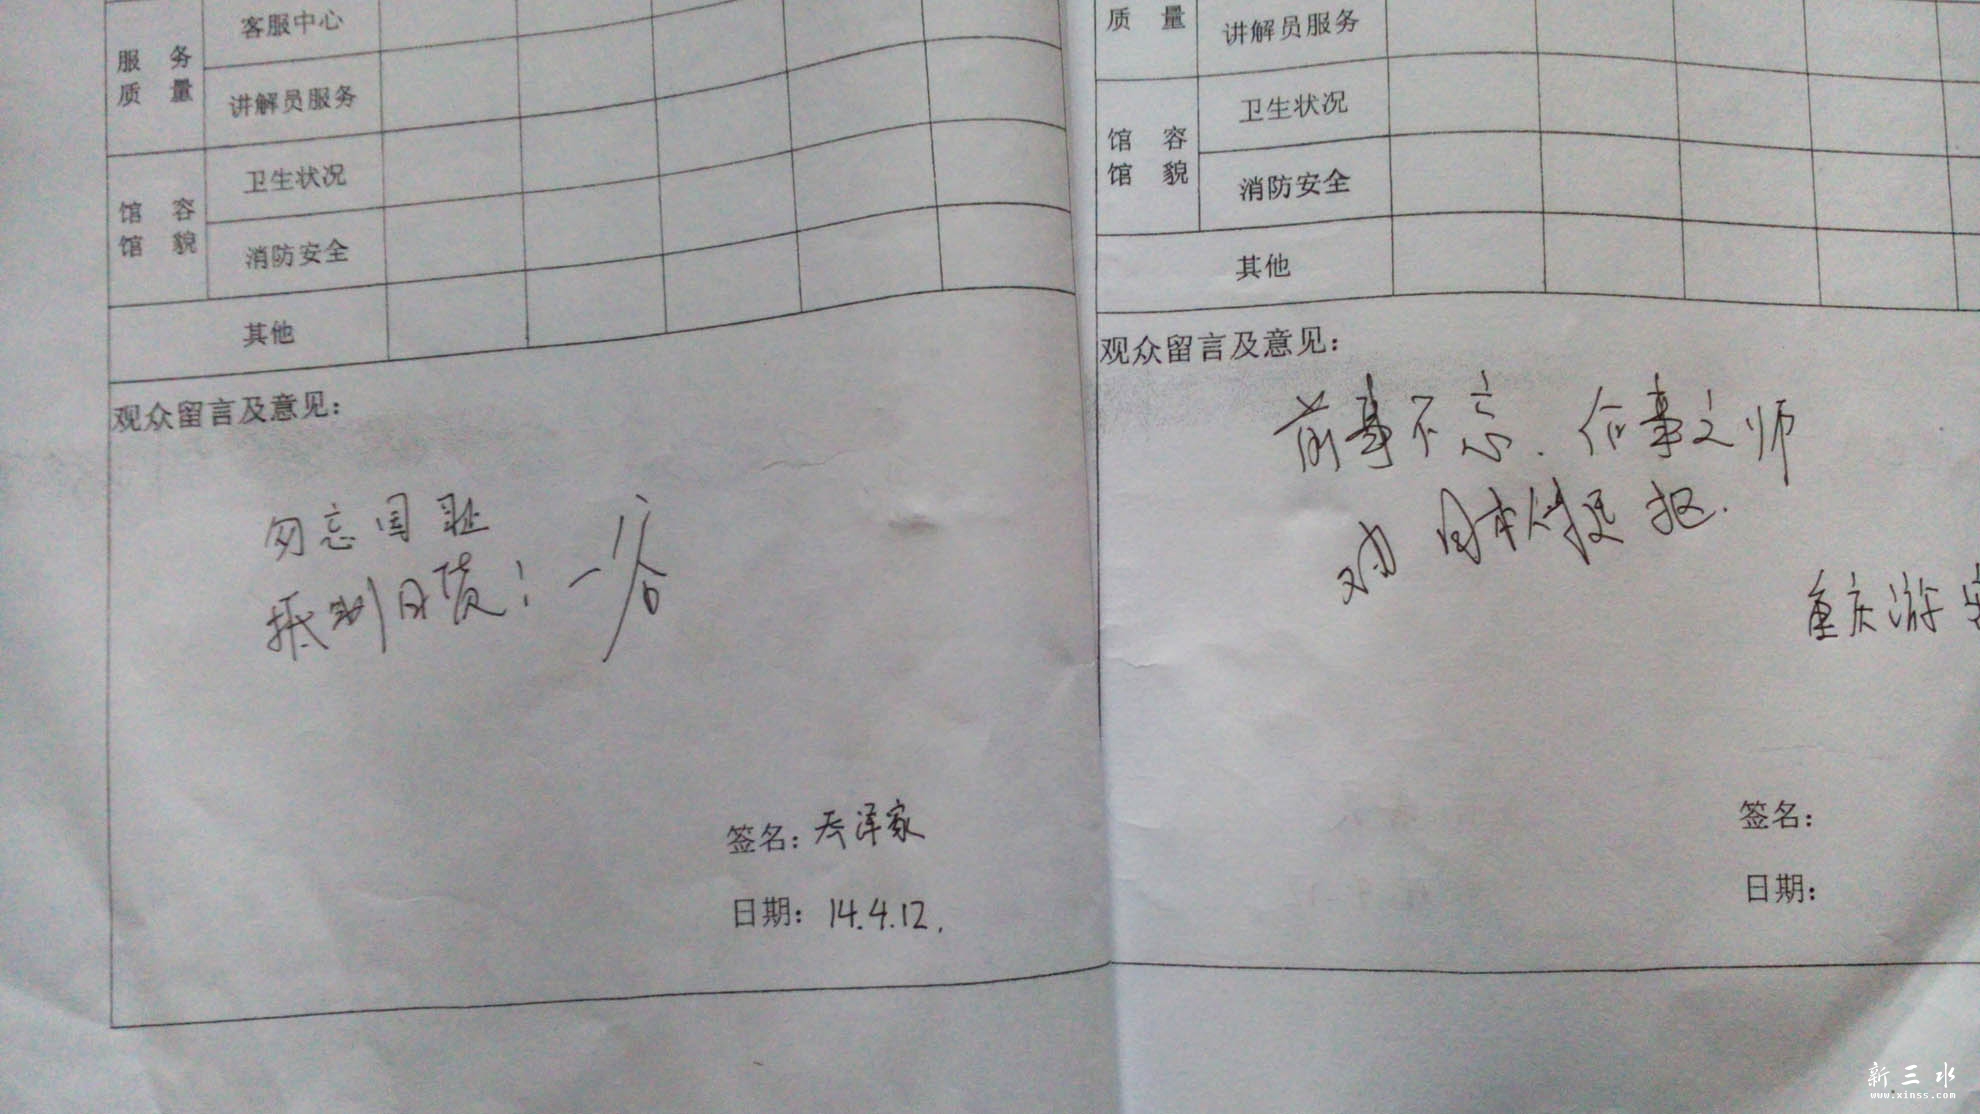 客服中心
服 务
质 量
讲解员服务
卫生状况
馆 容
馆 貌
消防安全
其他
观众留言及意见：
勿忘国耻
抵制日货！
签名：
日期：14.4.12.
质 量
讲解员服务
卫生状况
馆 容
馆 貌
消防安全
其他
观众留言及意见：
前事不忘.后事之师
对日本人
重庆游客
签名：
日期：
新三水
www.xinss.com